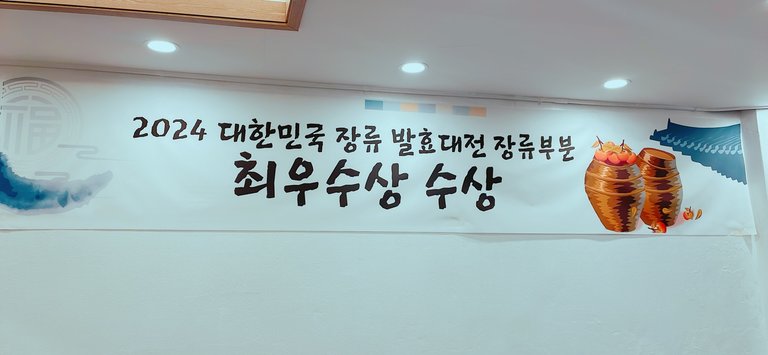 福
2024 대한민국 장류 발효대전 장류부분
최우수상 수상